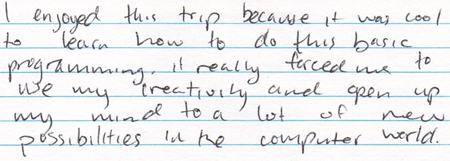 I enjoyed this trip because it was cool
to learn how to do this basic
programming. it really forced me to
use my creativity and open up
my mind to a lot of new
possibilities in the computer world.